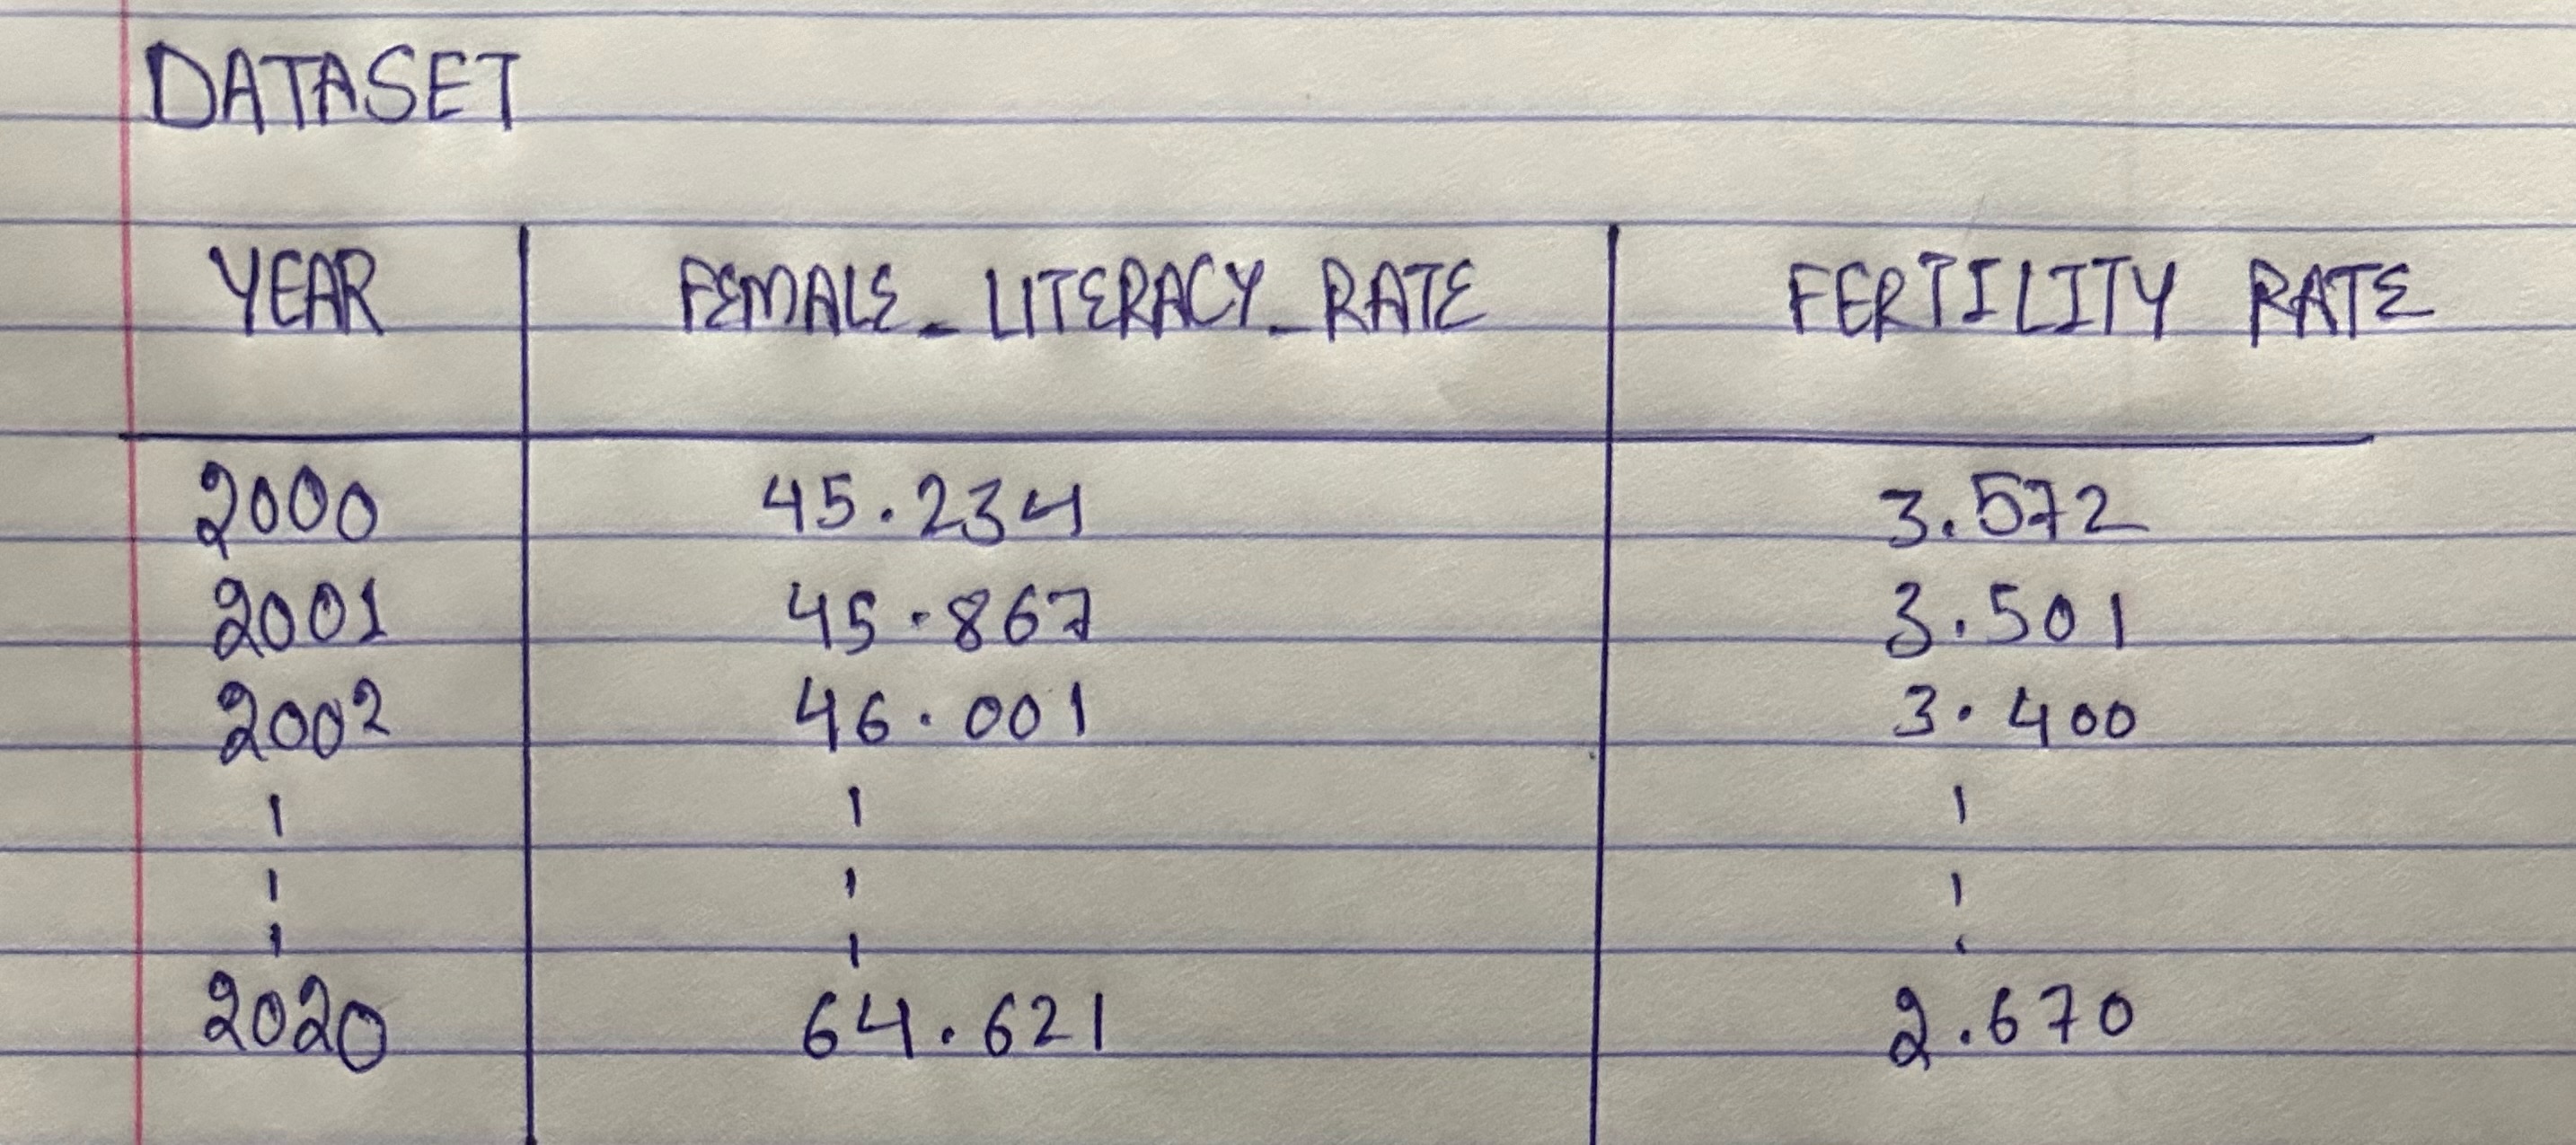 DATASET
YEAR FEMALE_LITERACY_RATE FERTILITY RATE
2000 45.234 3.572
2001 45.867 3.501
2002 46.001 3.400
2020 64.621 2.670